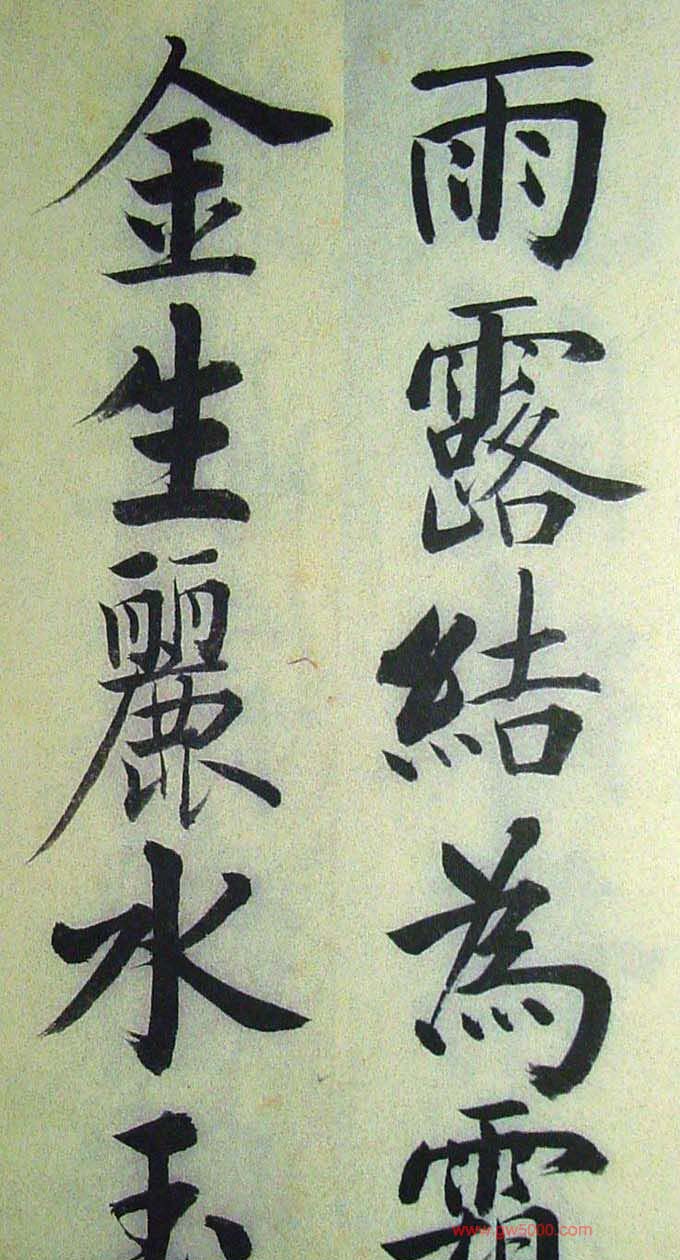 雨露結為霜
金生麗水玉
www.gw5000.com